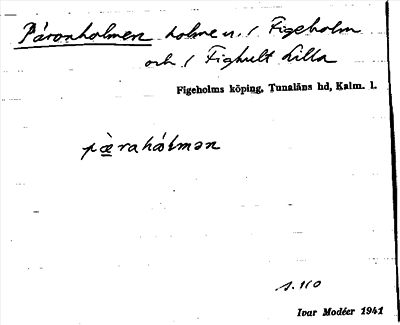 Päronholmen holme n. / Figeholm
och / Fighult Lilla
Figeholms köping, Tunaläns hd, Kalm. l.
pæ̀rahólmən
s. 110
Ivar Modéer 1941